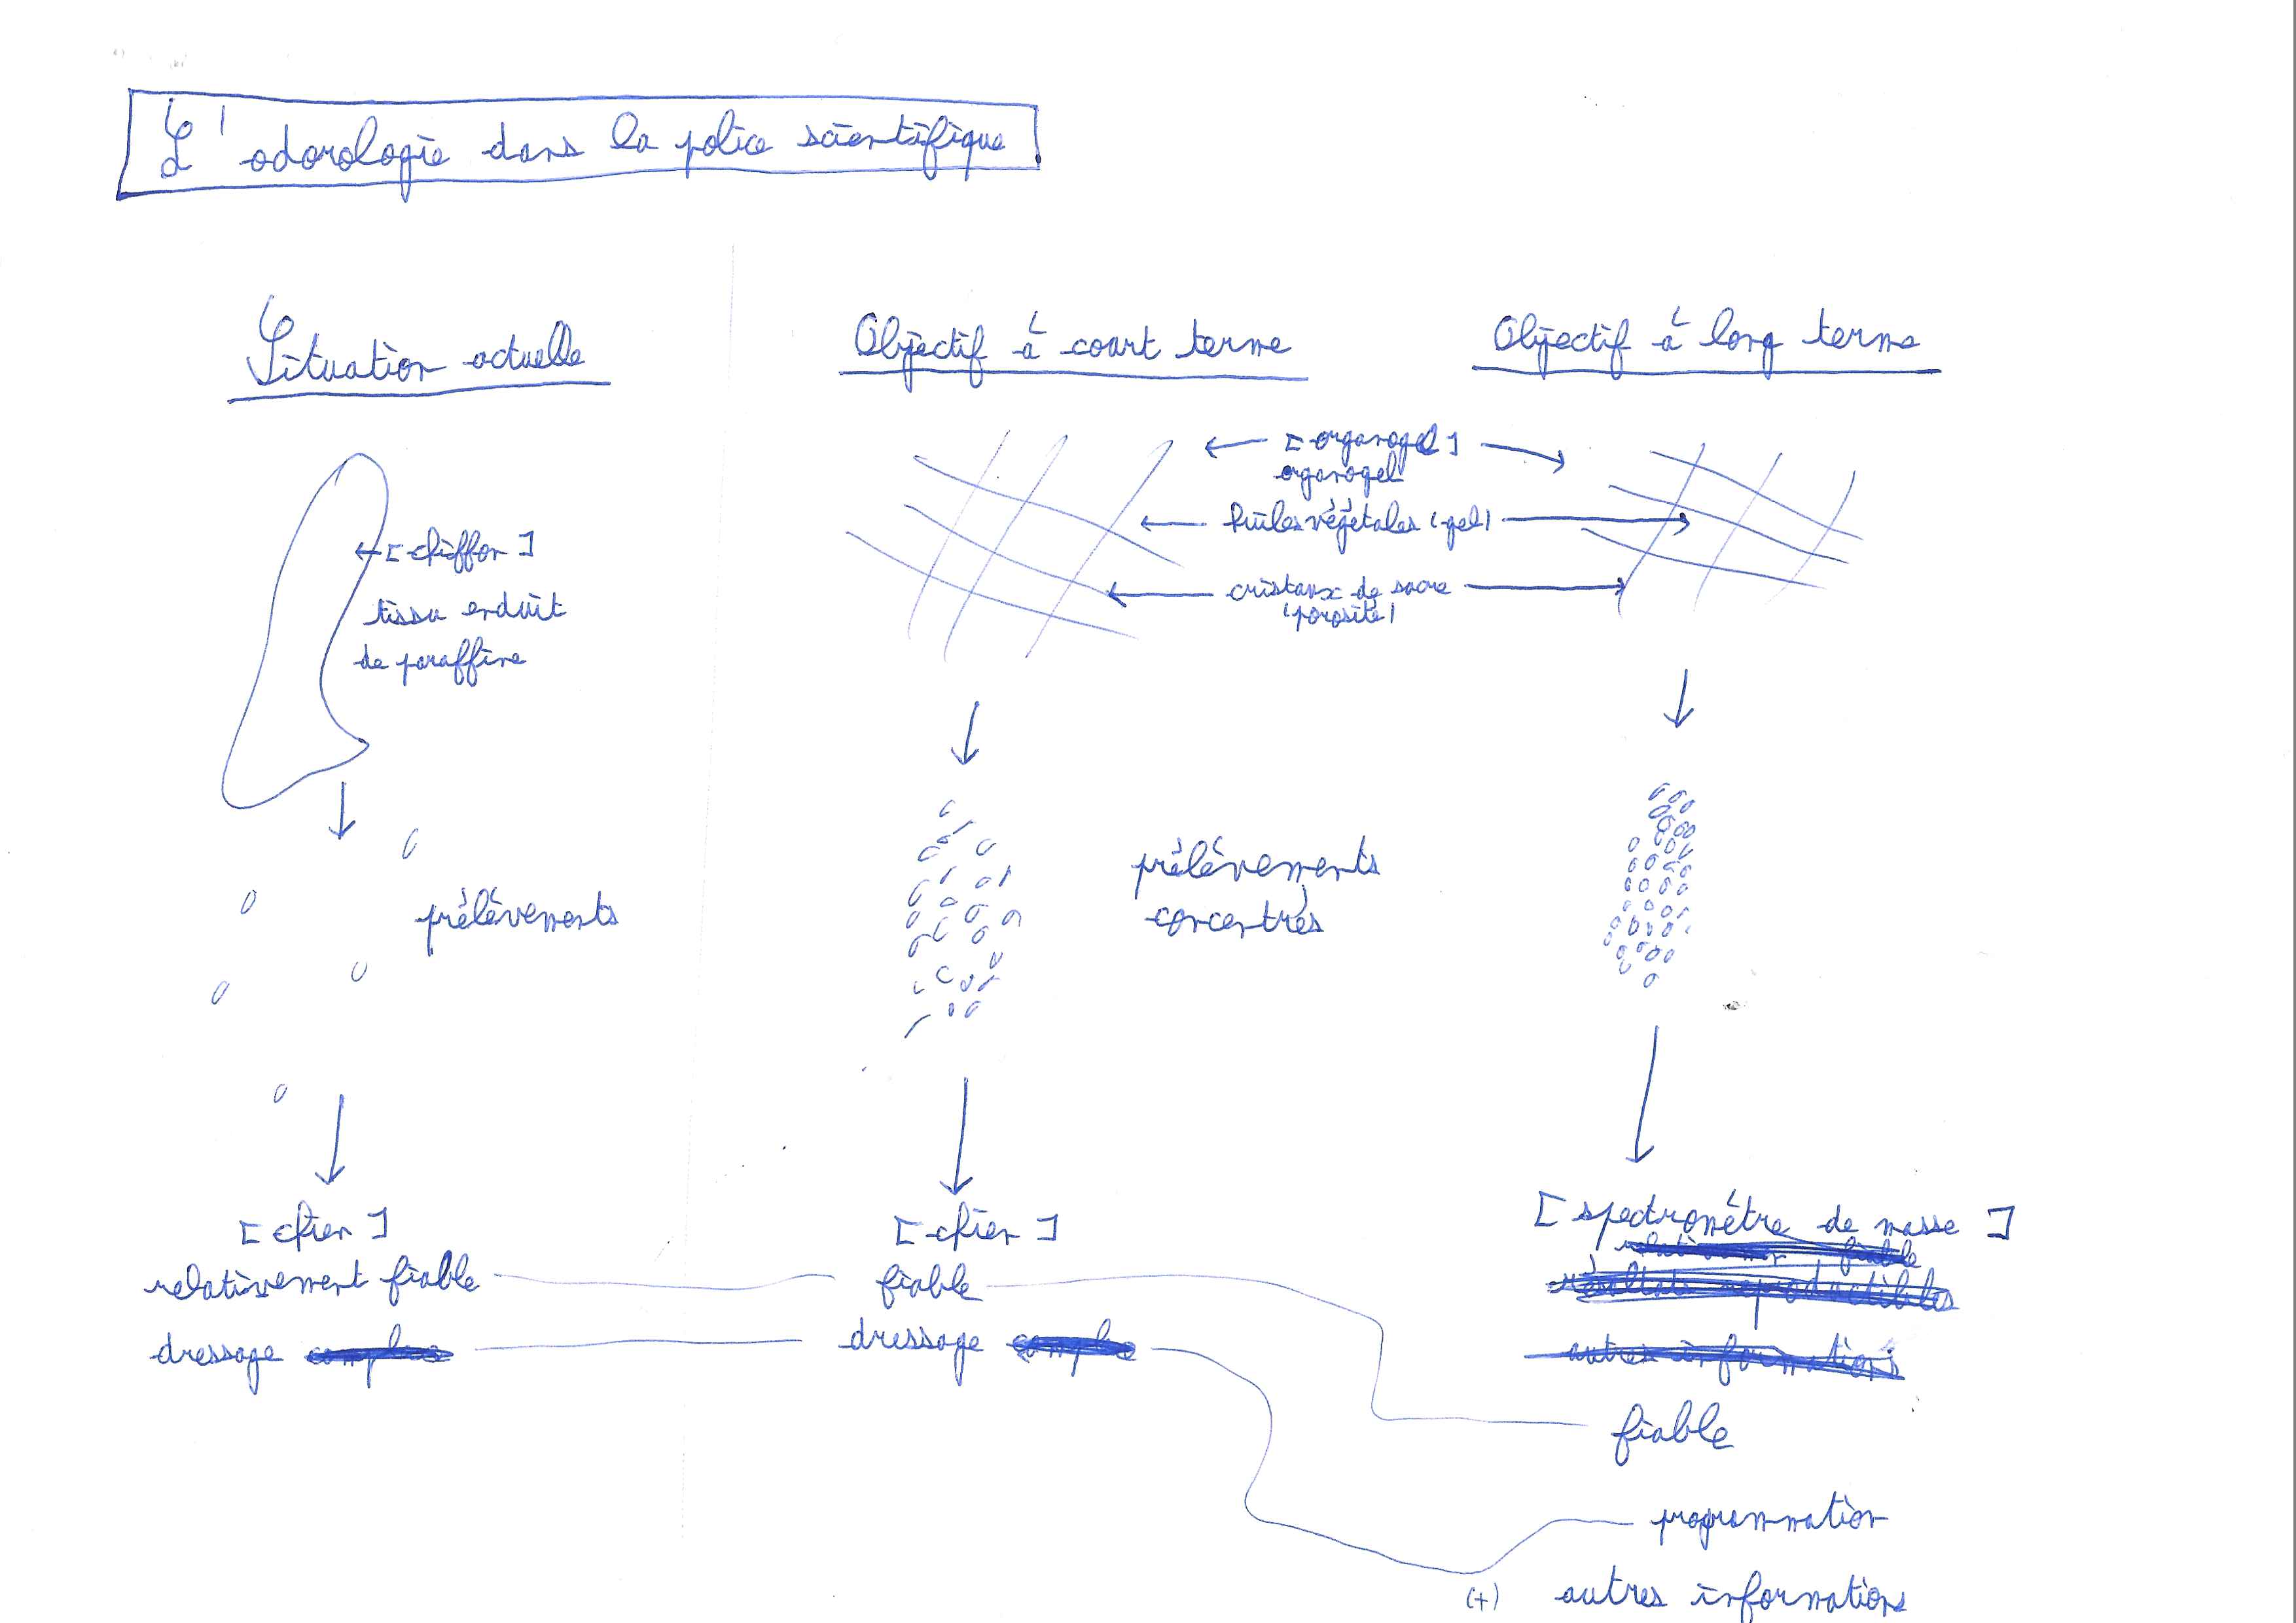 L'odorologie dans la police scientifique
Situation actuelle
[chiffon]
tissu enduit
de paraffine
prélèvements
[chien]
relativement fiable
dressage
Objectif à court terme
[organogel]
organogel
huiles végétales (gel)
cristaux de sucre
(porosité)
prélèvements
concentrés
[chien]
fiable
dressage
Objectif à long terme
[spectromètre de masse]
fiable
résultats reproductibles
autres informations
fiable
programmation
(+) autres informations